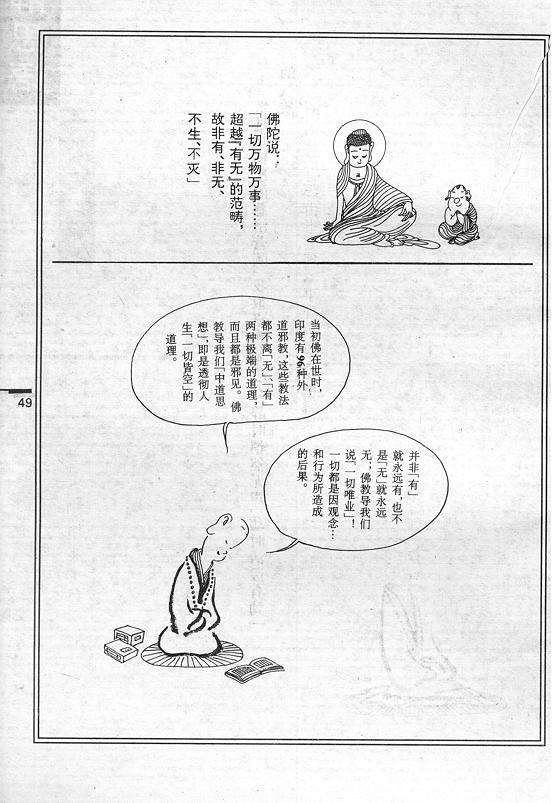 佛陀说：
「一切万物万事……
超越『有无』的范畴，
故非有、非无、
不生、不灭」
当初佛在世时，
印度有96种外
道邪教，这些教法
都不离「无」、「有」
两种极端的道理，
而且都是邪见。佛
教导我们「中道思
想」，即是透彻人
生「一切皆空」的
道理。
并非「有」
就永远有，也不
是「无」就永远
无；佛教导我们
说「一切唯业」！
一切都是因观念…
和行为所造成
的后果。
49